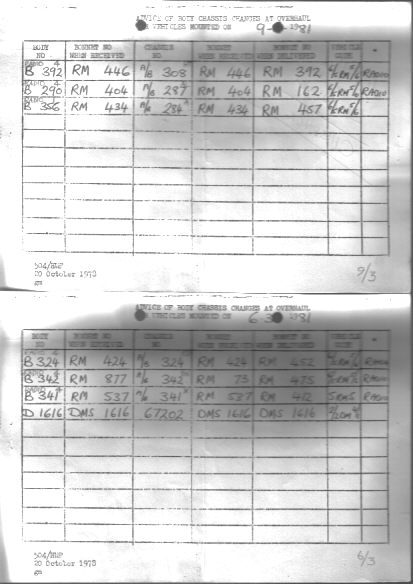 ADVICE OF BODY CHASSIS CHANGES AT OVERHAUL
VEHICLES MOUNTED ON 9-3-1981
BODY NO BONNET NO WHEN RECEIVED CHASSIS NO BONNET WHEN RECEIVED BONNET NO WHEN DELIVERED VEHICLE CODE
RADIO
B 392 RM 446 A/B 308 RM 446 RM 392 RADIO
RADIO
B 290 RM 404 287 RM 404 RM 162 RADIO
B 356 RM 434 284 RM 434 RM 457
504/
20 October 1978
9/3
ADVICE OF BODY CHASSIS CHANGES AT OVERHAUL
VEHICLES MOUNTED ON 6-3 1981
BODY NO BONNET NO WHEN RECEIVED CHASSIS NO BONNET WHEN RECEIVED BONNET NO WHEN DELIVERED VEHICLE CODE
B 324 RM 424 A/B 324 RM 424 RM 452 RADIO
B 342 RM 877 342 RM 73 RM 475 RADIO
B 341 RM 537 341 RM 537 RM 412 5RM5 RADIO
D 1616 DMS 1616 67202 DMS 1616 DMS 1616
504/
20 October 1978
6/3